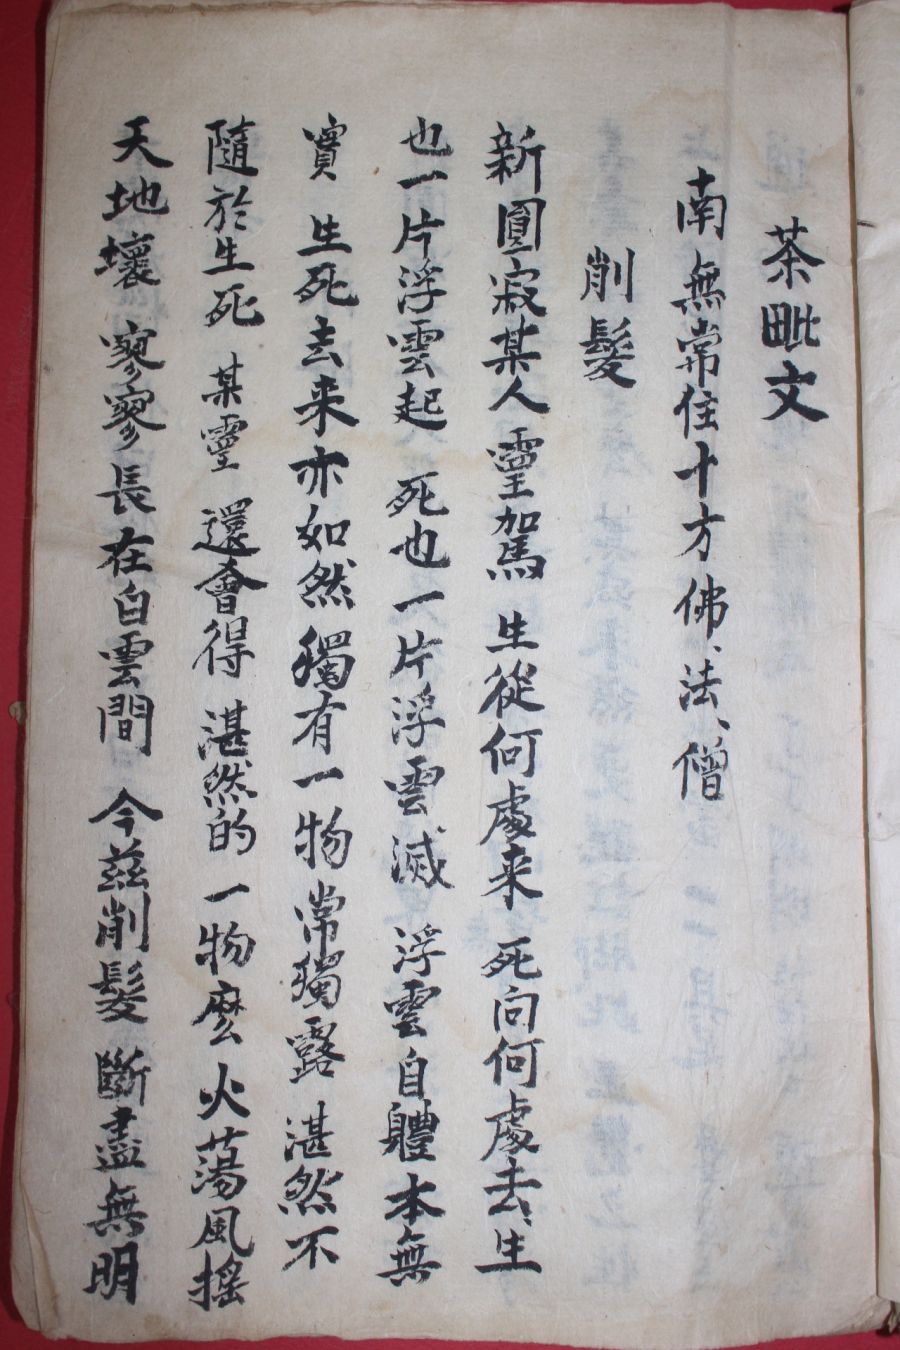 茶毗文
南無常住十方佛、法、僧
削髮
新圓寂某人 靈駕 生從何處来 死向何處去、生
也一片浮雲起 死也一片浮雲滅 浮雲自軆本無
實 生死去来亦如然 獨有一物常獨露 湛然不
隨於生死 某靈 還會得 湛然的一物麽 火蕩風搖
天地壞 寥寥長在白雲間 今茲削髮 斷盡無明